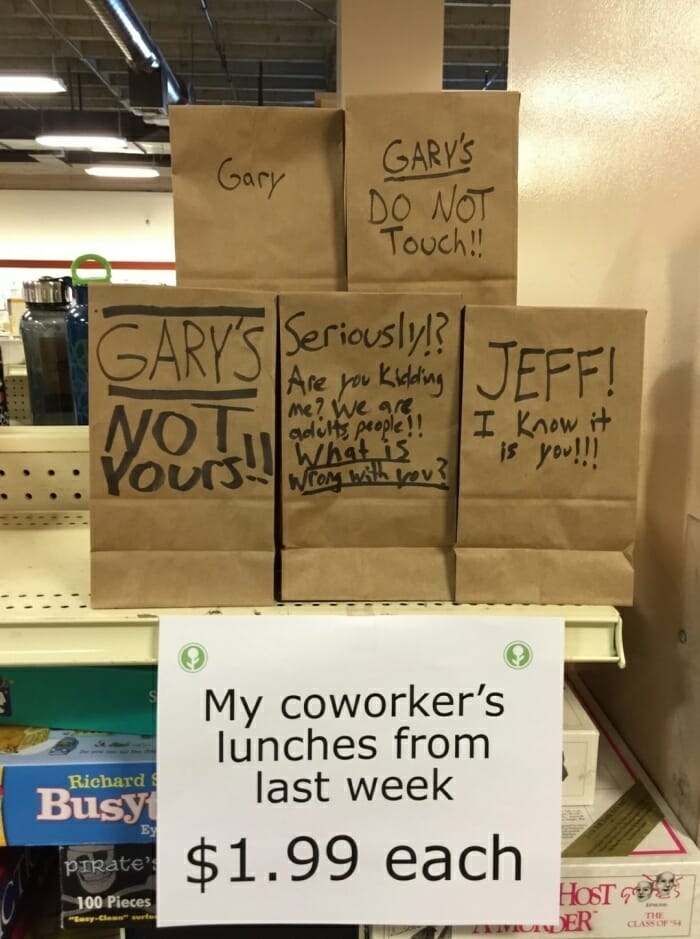 Gary
GARY'S
DO NOT
Touch!!
GARY'S
NOT
YOURS!!
Seriously!?
Are you Kidding
me? We are
adults, people!!
What is
wrong with you?
JEFF!
I Know it
is you!!!
My coworker's
lunches from
last week
$1.99 each
Richard S
Busyt
Ey
PIRate's
100 Pieces
"Easy-Clean"
HOST
MURDER
THE
CLASS OF '54